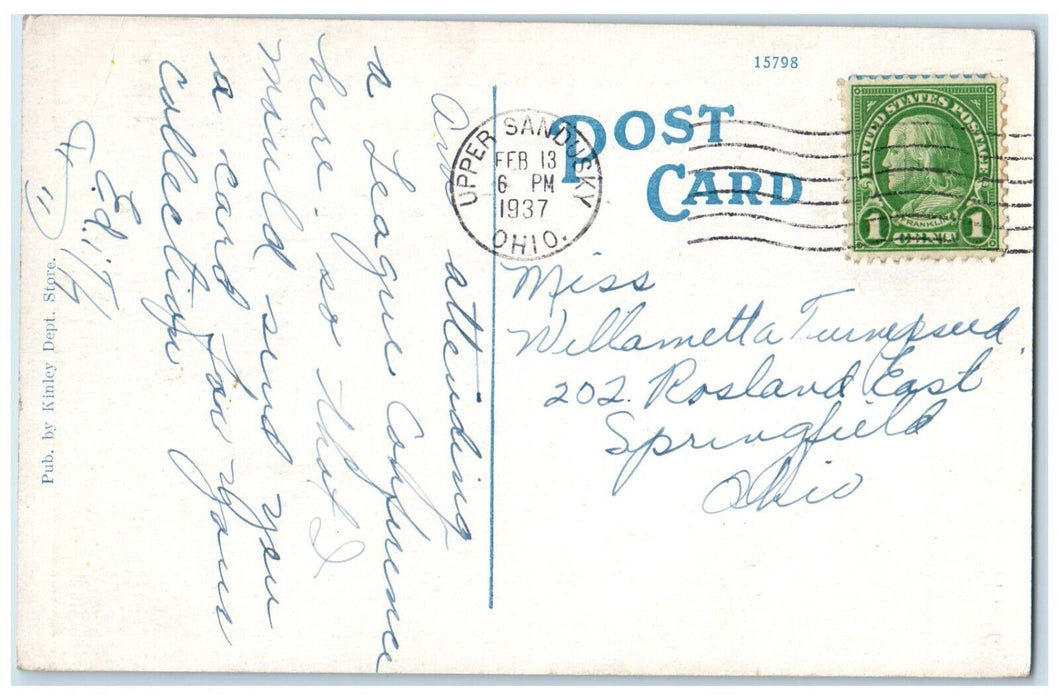 15798
POST
CARD
UPPER SANDUSKY
FEB 13
6 PM
1937
OHIO.
UNITED STATES POSTAGE
FRANKLIN
1 1
Miss
Willametta Turnipseed
202 Rosland East
Springfield
Ohio
Am attending
a League Conference
here. so thot I
would send you
a card for your
collection
Edith
Pub. by Kinley Dept. Store.